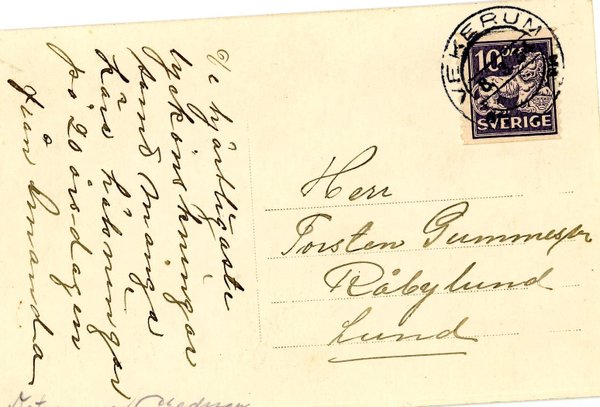 De hjärtligaste
lyckönskningar
samt många
kära hälsningar
på 20 årsdagen
från Amanda
VEKERUM
10 ÖRE
SVERIGE
Herr
Torsten Gummesson
Råbylund
Lund